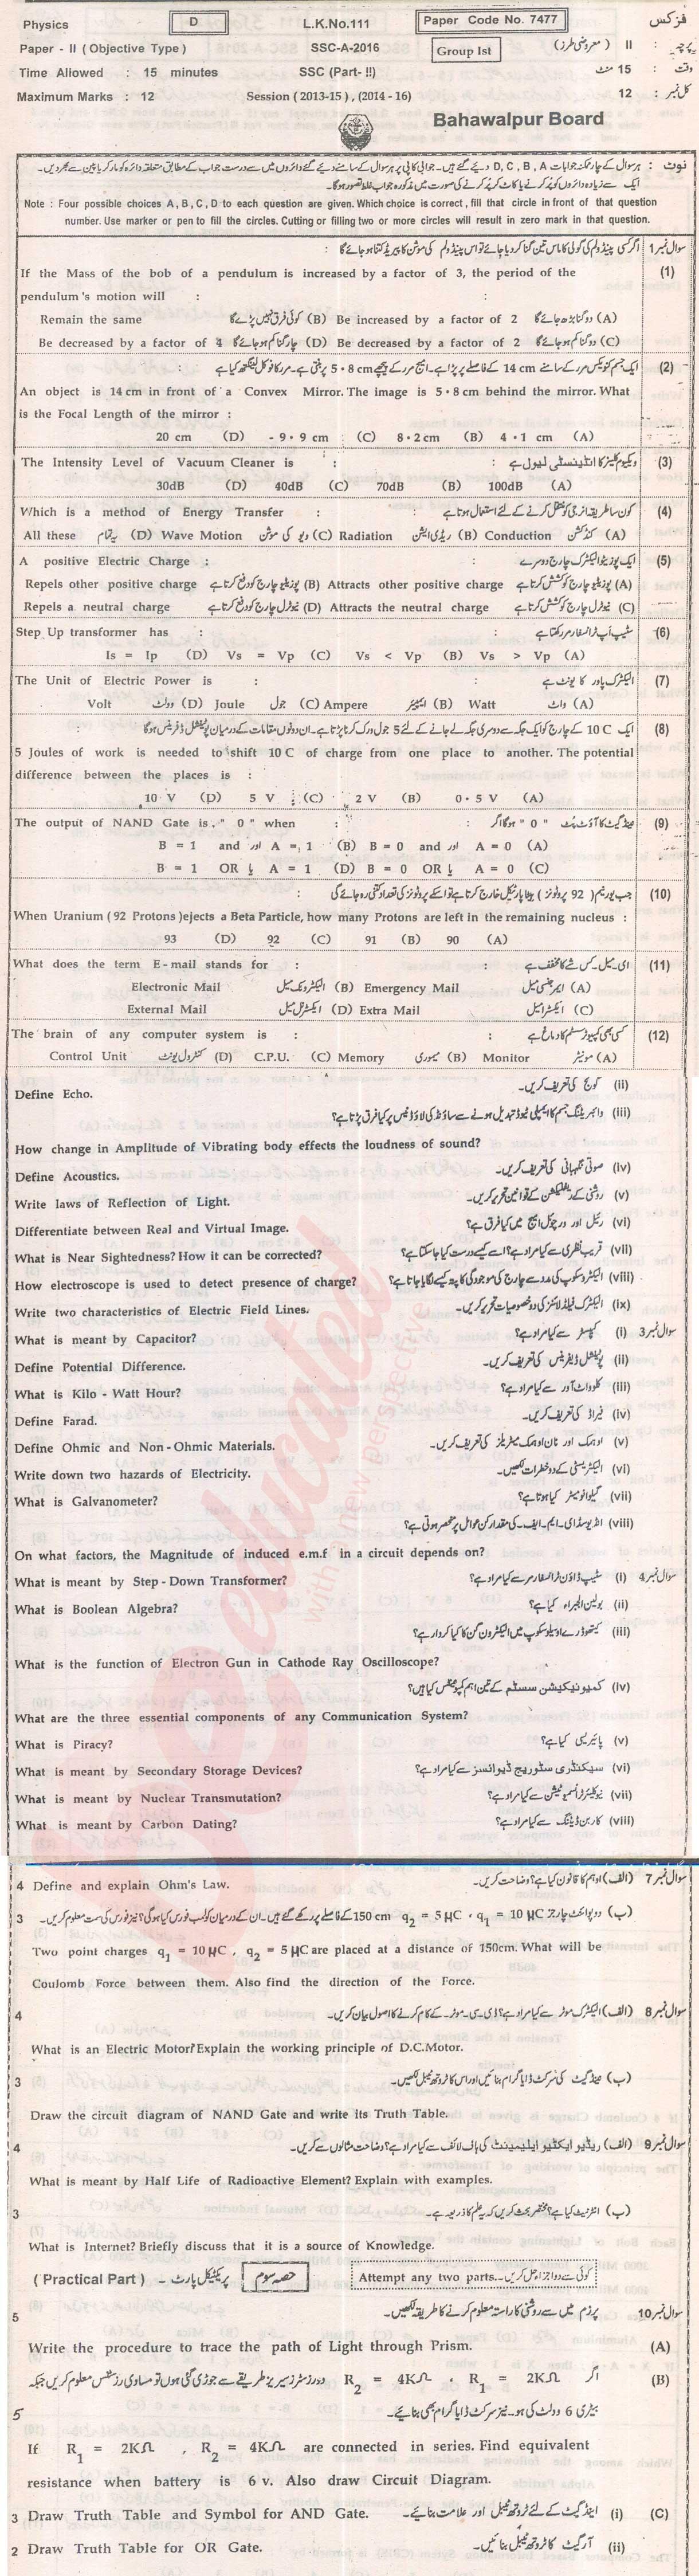 Physics D L.K.No.111 Paper Code No. 7477 فزکس
Paper - II (Objective Type) SSC-A-2016 Group Ist پرچہ : II (معروضی طرز)
Time Allowed : 15 minutes SSC (Part- !!) وقت : 15 منٹ
Maximum Marks : 12 Session (2013-15), (2014 - 16) کل نمبر : 12
Bahawalpur Board
نوٹ : ہر سوال کے چار ممکنہ جوابات D, C, B, A دیئے گئے ہیں۔ جوابی کاپی پر ہر سوال کے سامنے دیئے گئے دائروں میں سے درست جواب کے مطابق متعلقہ دائرہ کو مارکر یا پین سے بھر دیں۔
ایک سے زیادہ دائروں کو پُر کرنے یا کاٹ کر پُر کرنے کی صورت میں مذکورہ جواب غلط تصور ہوگا۔
Note : Four possible choices A, B, C, D to each question are given. Which choice is correct, fill that circle in front of that question
number. Use marker or pen to fill the circles. Cutting or filling two or more circles will result in zero mark in that question.
سوال نمبر 1 اگر کسی پینڈولم کی گولی کا ماس تین گنا کر دیا جائے تو اس پینڈولم کی موشن کا پیریڈ کتنا ہو جائے گا :
If the Mass of the bob of a pendulum is increased by a factor of 3, the period of the (1)
pendulum's motion will : :
Remain the same کوئی فرق نہیں پڑے گا (B) Be increased by a factor of 2 دوگنا بڑھ جائے گا (A)
Be decreased by a factor of 4 چار گنا کم ہو جائے گا (D) Be decreased by a factor of 2 دوگنا کم ہو جائے گا (C)
ایک جسم کنویکس مرر کے سامنے 14 cm کے فاصلے پر پڑا ہے۔ امیج مرر کے پیچھے 5·8 cm پر بنتی ہے۔ مرر کا فوکل لینگتھ کیا ہے : (2)
An object is 14 cm in front of a Convex Mirror. The image is 5·8 cm behind the mirror. What
is the Focal Length of the mirror :
20 cm (D) -9·9 cm (C) 8·2 cm (B) 4·1 cm (A)
The Intensity Level of Vacuum Cleaner is : : ویکیوم کلینر کا انٹینسٹی لیول ہے (3)
30dB (D) 40dB (C) 70dB (B) 100dB (A)
Which is a method of Energy Transfer : : کون سا طریقہ انرجی کو منتقل کرنے کے لئے استعمال ہوتا ہے (4)
All these یہ تمام (D) Wave Motion ویو کی موشن (C) Radiation ریڈی ایشن (B) Conduction کنڈکشن (A)
A positive Electric Charge : : ایک پوزیٹو الیکٹرک چارج دوسرے (5)
Repels other positive charge پوزیٹو چارج کو دفع کرتا ہے (B) Attracts other positive charge پوزیٹو چارج کو کشش کرتا ہے (A)
Repels a neutral charge نیوٹرل چارج کو دفع کرتا ہے (D) Attracts the neutral charge نیوٹرل چارج کو کشش کرتا ہے (C)
Step Up transformer has : : سٹیپ اَپ ٹرانسفارمر رکھتا ہے (6)
Is = Ip (D) Vs = Vp (C) Vs < Vp (B) Vs > Vp (A)
The Unit of Electric Power is : : الیکٹرک پاور کا یونٹ ہے (7)
Volt وولٹ (D) Joule جول (C) Ampere ایمپیئر (B) Watt واٹ (A)
ایک 10 C کے چارج کو ایک جگہ سے دوسری جگہ لے جانے کے لئے 5 جول ورک کرنا پڑتا ہے۔ ان دونوں مقامات کے درمیان پوٹینشل ڈفرینس ہوگا : (8)
5 Joules of work is needed to shift 10 C of charge from one place to another. The potential
difference between the places is :
10 V (D) 5 V (C) 2 V (B) 0·5 V (A)
The output of NAND Gate is " 0 " when : : نینڈ گیٹ کا آؤٹ پٹ " 0 " ہوگا اگر (9)
B = 1 and اور A = 1 (B) B = 0 and اور A = 0 (A)
B = 1 OR یا A = 1 (D) B = 0 OR یا A = 0 (C)
جب یورینیم (92 پروٹونز) بیٹا پارٹیکل خارج کرتا ہے تو اسکے پروٹونز کی تعداد کتنی رہ جائے گی : (10)
When Uranium (92 Protons) ejects a Beta Particle, how many Protons are left in the remaining nucleus :
93 (D) 92 (C) 91 (B) 90 (A)
What does the term E-mail stands for : : ای۔میل۔ کس شے کا مخفف ہے (11)
Electronic Mail الیکٹرونک میل (B) Emergency Mail ایمرجنسی میل (A)
External Mail ایکسٹرنل میل (D) Extra Mail ایکسٹرا میل (C)
The brain of any computer system is : : کسی بھی کمپیوٹر سسٹم کا دماغ ہے (12)
Control Unit کنٹرول یونٹ (D) C.P.U. (C) Memory میموری (B) Monitor مونیٹر (A)
(ii) گونج کی تعریف کریں۔
Define Echo.
(iii) وائبریٹنگ جسم کا ایمپلی ٹیوڈ تبدیل ہونے سے ساؤنڈ کی لاؤڈنیس پر کیا فرق پڑتا ہے؟
How change in Amplitude of Vibrating body effects the loudness of sound?
Define Acoustics. (iv) صوتی نگہبانی کی تعریف کریں۔
Write laws of Reflection of Light. (v) روشنی کے ریفلیکشن کے قوانین تحریر کریں۔
Differentiate between Real and Virtual Image. (vi) رئیل اور ورچوئل امیج میں کیا فرق ہے؟
What is Near Sightedness? How it can be corrected? (vii) قریب نظری سے کیا مراد ہے؟ اسے کیسے درست کیا جا سکتا ہے؟
How electroscope is used to detect presence of charge? (viii) الیکٹروسکوپ کی مدد سے چارج کی موجودگی کا پتہ کیسے لگایا جاتا ہے؟
Write two characteristics of Electric Field Lines. (ix) الیکٹرک فیلڈ لائنز کی دو خصوصیات تحریر کریں۔
What is meant by Capacitor? سوال نمبر 3 (i) کپیسٹر سے کیا مراد ہے؟
Define Potential Difference. (ii) پوٹینشل ڈیفرینس کی تعریف کریں۔
What is Kilo - Watt Hour? (iii) کلو واٹ آور سے کیا مراد ہے؟
Define Farad. (iv) فیراڈ کی تعریف کریں۔
Define Ohmic and Non-Ohmic Materials. (v) اوہمک اور نان اوہمک میٹریلز کی تعریف کریں۔
Write down two hazards of Electricity. (vi) الیکٹریسٹی کے دو خطرات لکھیں۔
What is Galvanometer? (vii) گیلوانومیٹر کیا ہوتا ہے؟
(viii) انڈیوسڈ ای۔ایم۔ایف۔ کی مقدار کن عوامل پر منحصر ہوتی ہے؟
On what factors, the Magnitude of induced e.m.f in a circuit depends on?
What is meant by Step-Down Transformer? سوال نمبر 4 (i) سٹیپ ڈاؤن ٹرانسفارمر سے کیا مراد ہے؟
What is Boolean Algebra? (ii) بولین الجبراء کیا ہے؟
(iii) کیتھوڈ رے اوسیلوسکوپ میں الیکٹرون گن کا کیا کردار ہے؟
What is the function of Electron Gun in Cathode Ray Oscilloscope?
(iv) کمیونیکیشن سسٹم کے تین اہم کمپوننٹس کیا ہیں؟
What are the three essential components of any Communication System?
What is Piracy? (v) پائیریسی کیا ہے؟
What is meant by Secondary Storage Devices? (vi) سیکنڈری سٹوریج ڈیوائسز سے کیا مراد ہے؟
What is meant by Nuclear Transmutation? (vii) نیوکلیئر ٹرانسمیوٹیشن سے کیا مراد ہے؟
What is meant by Carbon Dating? (viii) کاربن ڈیٹنگ سے کیا مراد ہے؟
4 Define and explain Ohm's Law. سوال نمبر 7 (الف) اوہم کا قانون کیا ہے؟ وضاحت کریں۔
3 (ب) دو پوائنٹ چارجز q1 = 10 μC , q2 = 5 μC 150 cm کے فاصلے پر رکھے گئے ہیں۔ ان کے درمیان کولمب فورس کیا ہوگی؟ نیز فورس کی سمت معلوم کریں۔
Two point charges q1 = 10 μC , q2 = 5 μC are placed at a distance of 150cm. What will be
Coulomb Force between them. Also find the direction of the Force.
4 سوال نمبر 8 (الف) الیکٹرک موٹر سے کیا مراد ہے؟ ڈی۔سی۔ موٹر۔ کے کام کرنے کا اصول بیان کریں۔
What is an Electric Motor? Explain the working principle of D.C.Motor.
3 (ب) نینڈ گیٹ کی سرکٹ ڈایا گرام بنائیں اور اس کا ٹروتھ ٹیبل لکھیں۔
Draw the circuit diagram of NAND Gate and write its Truth Table.
4 سوال نمبر 9 (الف) ریڈیو ایکٹیو ایلیمینٹ کی ہاف لائف سے کیا مراد ہے؟ وضاحت مثالوں سے کریں۔
What is meant by Half Life of Radioactive Element? Explain with examples.
3 (ب) انٹرنیٹ کیا ہے؟ مختصر بحث کریں کہ یہ علم کا ذریعہ ہے۔
What is Internet? Briefly discuss that it is a source of Knowledge.
(Practical Part) پریکٹیکل پارٹ۔ حصہ سوم Attempt any two parts. کوئی سے دو اجزاء حل کریں۔
5 سوال نمبر 10 پرزم میں سے روشنی کا راستہ معلوم کرنے کا طریقہ لکھیں۔
Write the procedure to trace the path of Light through Prism. (A)
(B) اگر R1 = 2KΩ , R2 = 4KΩ دو رزسٹرز سیریز طریقے سے جوڑی گئی ہوں تو مساوی رزسٹنس معلوم کریں جبکہ
5 بیٹری 6 وولٹ کی ہو۔ نیز سرکٹ ڈایا گرام بھی بنائیے۔
If R1 = 2KΩ , R2 = 4KΩ are connected in series. Find equivalent
resistance when battery is 6 v. Also draw Circuit Diagram.
3 Draw Truth Table and Symbol for AND Gate. (C) (i) اینڈ گیٹ کے لئے ٹروتھ ٹیبل اور علامت بنائیے۔
2 Draw Truth Table for OR Gate. (ii) آر گیٹ کا ٹروتھ ٹیبل بنائیں۔
educated
with new perspective